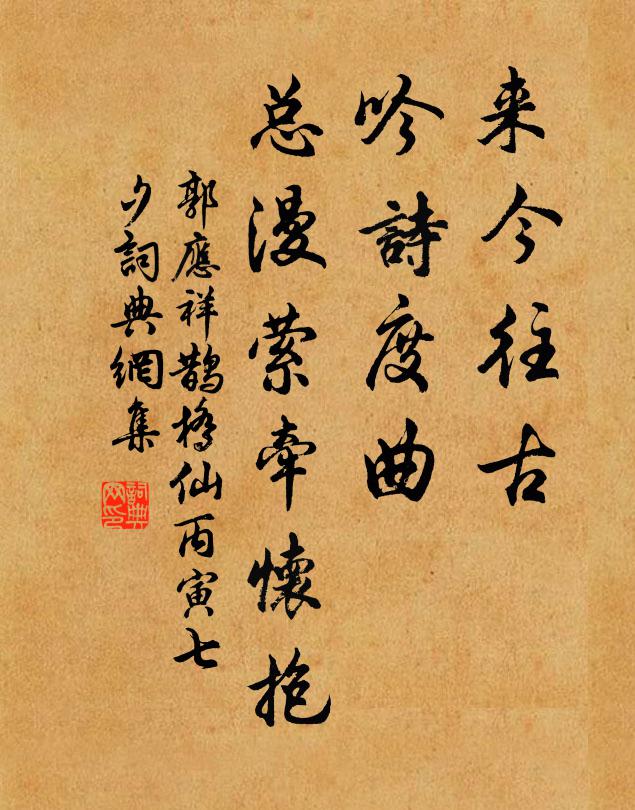 来今往古
吟詩度曲
总漫萦牽懷抱
郭應祥鵲橋仙丙寅七
夕詞典網集
詞典
网印